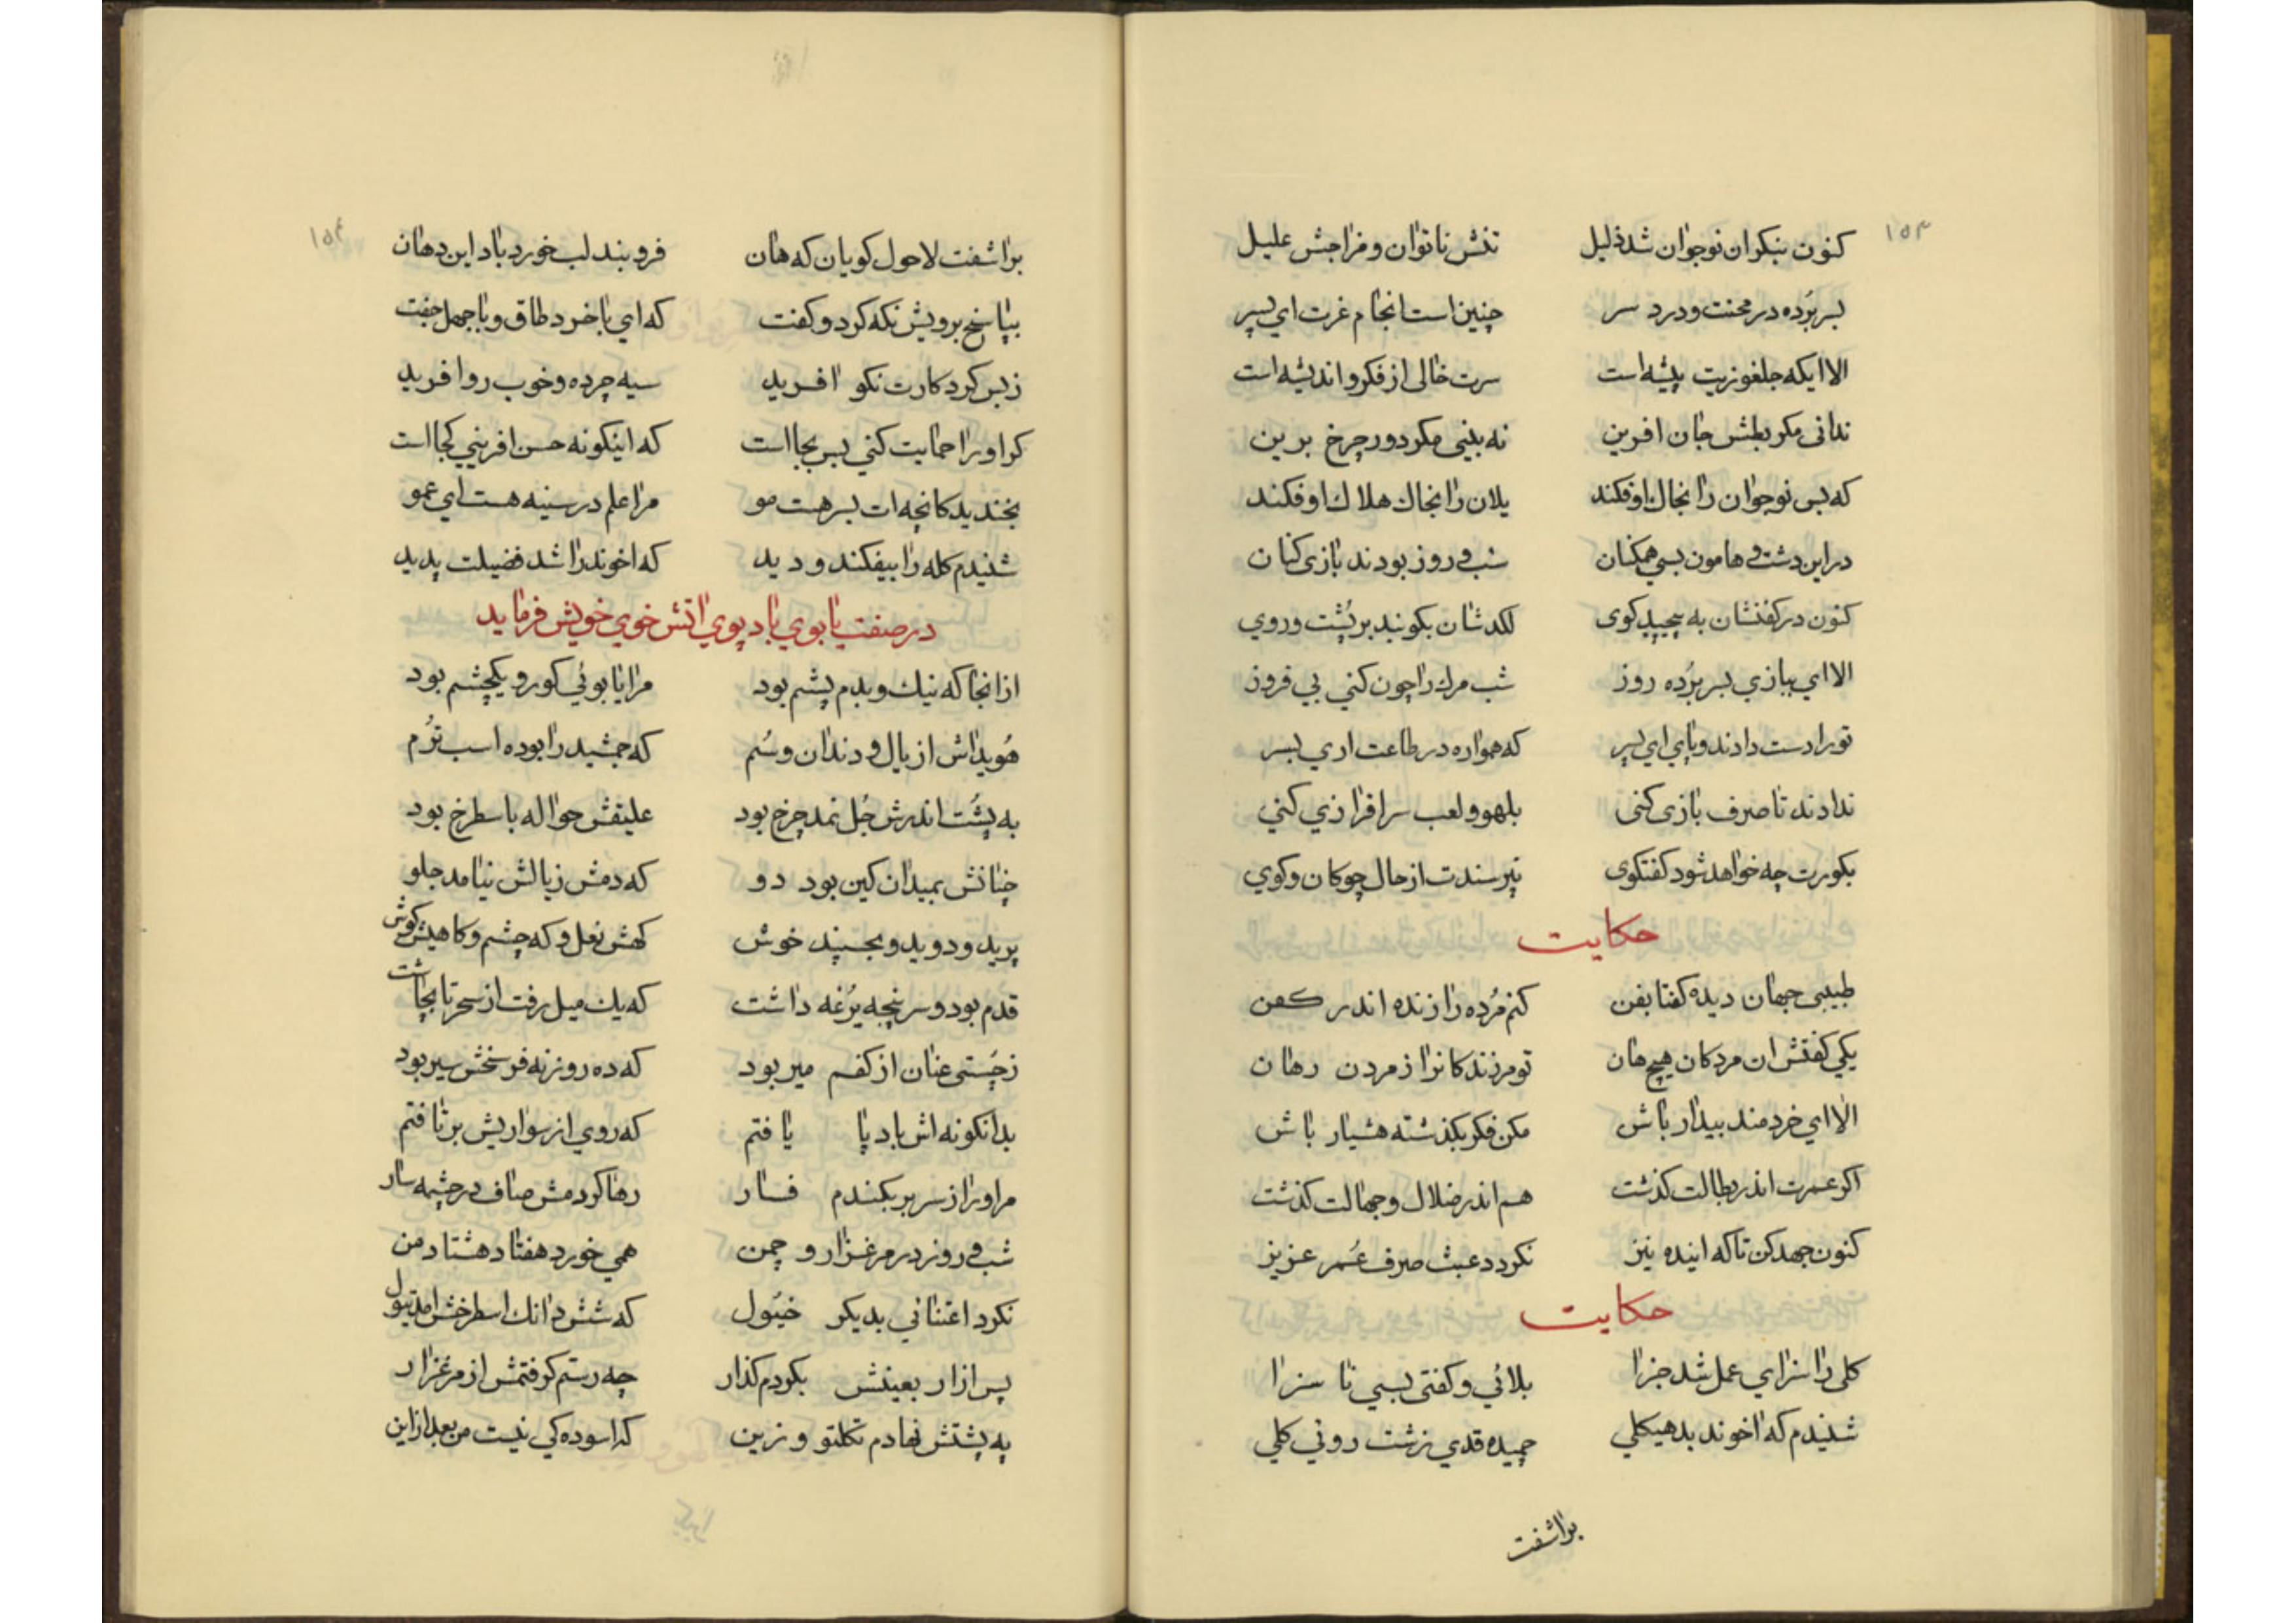 ۱۵۳
کنون بنکر ان نوجوان شد ذلیل تنش ناتوان و مزاجش علیل
بسر برُده در محنت و درد سر چنین است انجام غرت ای پسر
الا ایکه جلغوزیت پیشه است سرت خالی از فکر و اندیشه است
ندانی مکر بطش جان افرین نه بینی مکر دور چرخ برین
که بس نوجوان را بخاک اوفکند یلان را بخاك هلاك اوفکند
در این دشت و هامون بسی همکنان شب و روز بودند بازی کنان
کنون در کفنشان به پیچید کوی لکدشان بکونید بر پُشت و روی
الا ای ببازی بسر برُده روز شب مرك را چون کنی بی فروز
تو را دست دادند و پای ای پسر که همواره در طاعت اری بسر
ندادند تا صرف بازی کنی بلهو و لعب سرافرازی کنی
بکورت چه خواهد شود کفتکوی نپرسندت از حال چوکان و کوی
حکایت
طبیبی جهان دیده کفتا بفن کنم مُرده را زنده اندر کفن
یکی کفتش ان مردکان هیچ هان تو مر زندکانرا ز مردن رهان
الا ای خردمند بیدار باش مکن فکر بکذشته هشیار باش
اکر عمرت اندر بطالت کذشت هم اندر ضلال و جهالت کذشت
کنون جهد کن تا که اینده نیز نکردد عبث صرف عُمر عزیز
حکایت
کلی را سزای عمل شد جزا بلائی و کفتی بسی نا سزا
شنیدم که اخوند بد هیکلی چمیده قدی زشت روئی کلی
براشفت
۱۵۴
براشفت لاحول کویان که هان فرو بند لب خورد باد این دهان
بپاسخ برویش نکه کرد و کفت که ای با خرد طاق و با جهل جفت
ز بس کرد کارت نکو افرید سیه چرده و خوب رو افرید
کر او را حمایت کنی بس بجا است که اینکونه حسن افرینی کجا است
بخندید کانچه ات بسر هست مو مرا علم در سینه هست ای عمو
شنیدم کله را بیفکند و دید که اخوند را شد فضیلت پدید
در صفت یابوی باد پوی اتش خوی خویش فرماید
از انجا که نیك و بدم پشم بود مرا یابوئی کور و یکچشم بود
هُویداش از یال و دندان و سُم که جمشید را بوده اسب ترُم
به پُشت اندرش جُل نمد چرخ بود علیقش حواله باسطرخ بود
چنانش بمیدان کین بود دو که دمش ز یالش نیامد جلو
پرید و دوید و بجسپند خوش کهش نعل و که چشم و کاهیش کوش
قدم بود و سر پنجه یرُغه داشت که یك میل رفت از سحر تا بچاشت
ز چُستی عنان از کفم میر بود که ده روزنه فرسخش سیر بود
بدانکونه اش باد پا یافتم که روی از سواریش برتافتم
مر او را ز سر بر بکندم فسار رها کردمش صاف در چشمه سار
شب و روز در مرغزار و چمن همی خورد هفتاد هشتاد من
نکرد اعتنائی بدیکر خیُول که شش دانك اسطرخش امد تیول
پس از ار بعینش بکردم کذار چه رستم کرفتمش از مرغزار
به پشتش نهادم تکلتو و زین که اسوده کی نیست من بعد از این